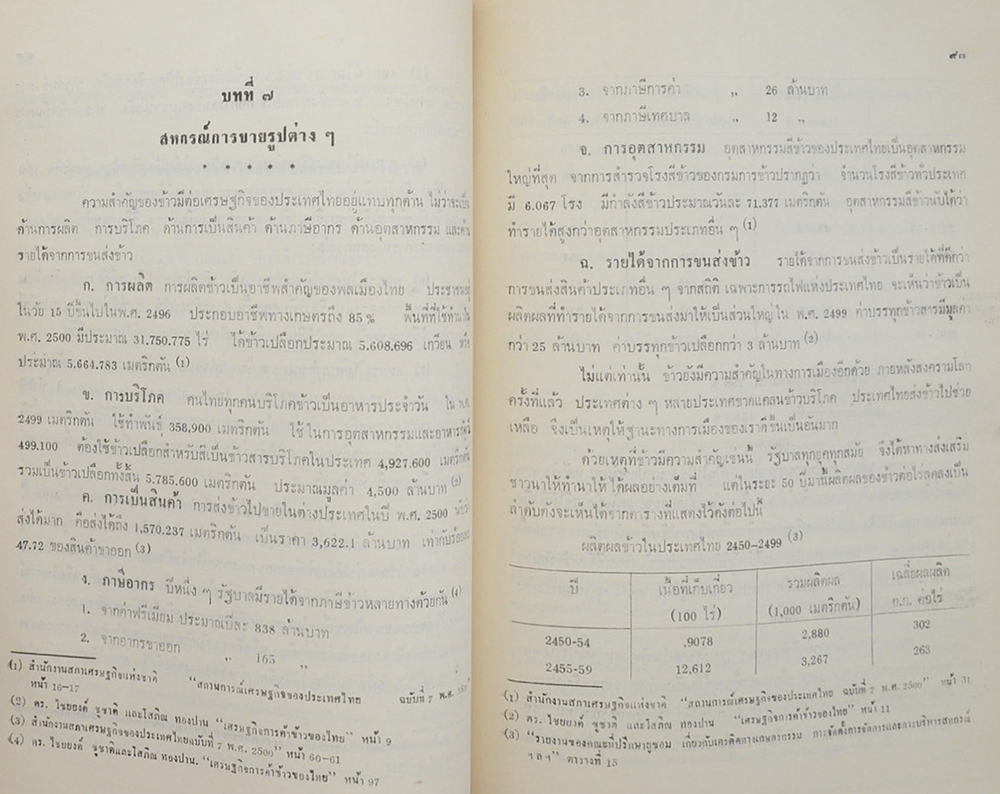 บทที่ ๗
สหกรณ์การขายรูปต่าง ๆ
* * * * *
ความสำคัญของข้าวมีต่อเศรษฐกิจของประเทศไทยอยู่แทบทุกด้าน ไม่ว่าจะเป็น
ด้านการผลิต การบริโภค ด้านการเป็นสินค้า ด้านภาษีอากร ด้านอุตสาหกรรม และด้าน
รายได้จากการขนส่งข้าว
ก. การผลิต การผลิตข้าวเป็นอาชีพสำคัญของพลเมืองไทย
ในวัย 15 ปีขึ้นไปในพ.ศ. 2496 ประกอบอาชีพทางเกษตรถึง 85 % พื้นที่ที่ใช้ทำนาใน
พ.ศ. 2500 มีประมาณ 31.750.775 ไร่ ได้ข้าวเปลือกประมาณ 5.608.696 เกวียน หรือ
ประมาณ 5.664.783 เมตริกตัน (1)
ข. การบริโภค คนไทยทุกคนบริโภคข้าวเป็นอาหารประจำวัน ใน พ.ศ.
2499 เมตริกตัน ใช้ทำพันธุ์ 358,900 เมตริกตัน ใช้ในการอุตสาหกรรมและอาหารสัตว์
499.100 ต้องใช้ข้าวเปลือกสำหรับสีเป็นข้าวสารบริโภคในประเทศ 4,927,600 เมตริกตัน
รวมเป็นข้าวเปลือกทั้งสิ้น 5,785,600 เมตริกตัน ประมาณมูลค่า 4,500 ล้านบาท (2)
ค. การเป็นสินค้า การส่งข้าวไปขายในต่างประเทศในปี พ.ศ. 2500 นับว่า
ส่งได้มาก คือส่งได้ถึง 1,570.237 เมตริกตัน เป็นราคา 3,622.1 ล้านบาท เท่ากับร้อยละ
47.72 ของสินค้าขาออก (3)
ง. ภาษีอากร ปีหนึ่ง ๆ รัฐบาลมีรายได้จากภาษีข้าวหลายทางด้วยกัน (4)
1. จากค่าพรีเมียม ประมาณปีละ 838 ล้านบาท
2. จากอากรขาออก ,, 165 ,,
(1) สำนักงานสภาเศรษฐกิจแห่งชาติ "สถานการณ์เศรษฐกิจของประเทศไทย ฉบับที่ 7 พ.ศ. 2500"
หน้า 16-17
(2) ดร. ไชยยงค์ ชูชาติ และโสภิณ ทองปาน "เศรษฐกิจการค้าข้าวของไทย" หน้า 9
(3) สำนักงานสภาเศรษฐกิจของประเทศไทยฉบับที่ 7 พ.ศ. 2500" หน้า 60-61
(4) ดร. ไชยยงค์ ชูชาติและโสภิณ ทองปาน. "เศรษฐกิจการค้าข้าวของไทย" หน้า 97
๙๗
3. จากภาษีการค้า ,, 26 ล้านบาท
4. จากภาษีเทศบาล ,, 12 ,,
จ. การอุตสาหกรรม อุตสาหกรรมสีข้าวของประเทศไทยเป็นอุตสาหกรรม
ใหญ่ที่สุด จากการสำรวจโรงสีข้าวของกรมการข้าวปรากฏว่า จำนวนโรงสีข้าวทั่วประเทศ
มี 6.067 โรง มีกำลังสีข้าวประมาณวันละ 71.377 เมตริกตัน อุตสาหกรรมสีข้าวนับได้ว่า
ทำรายได้สูงกว่าอุตสาหกรรมประเภทอื่น ๆ (1)
ฉ. รายได้จากการขนส่งข้าว รายได้จากการขนส่งข้าวเป็นรายได้ที่ดีกว่า
การขนส่งสินค้าประเภทอื่น ๆ จากสถิติ เฉพาะการรถไฟแห่งประเทศไทย จะเห็นว่าข้าวเป็น
ผลิตผลที่ทำรายได้จากการขนส่งมาให้เป็นส่วนใหญ่ ใน พ.ศ. 2499 ค่าบรรทุกข้าวสารมีมูลค่า
กว่า 25 ล้านบาท ค่าบรรทุกข้าวเปลือกกว่า 3 ล้านบาท (2)
ไม่แต่เท่านั้น ข้าวยังมีความสำคัญในทางการเมืองอีกด้วย ภายหลังสงครามโลก
ครั้งที่แล้ว ประเทศต่าง ๆ หลายประเทศขาดแคลนข้าวบริโภค ประเทศไทยส่งข้าวไปช่วย
เหลือ จึงเป็นเหตุให้ฐานะทางการเมืองของเราดีขึ้นเป็นอันมาก
ด้วยเหตุที่ข้าวมีความสำคัญเช่นนี้ รัฐบาลทุกยุคทุกสมัย จึงได้หาทางส่งเสริม
ชาวนาให้ทำนาให้ได้ผลอย่างเต็มที่ แต่ในระยะ 50 ปีมานี้ผลิตผลของข้าวต่อไร่ลดลงเป็น
ลำดับดังจะเห็นได้จากตารางที่แสดงไว้ดังต่อไปนี้
ผลิตผลข้าวในประเทศไทย 2450-2499 (3)
ปี เนื้อที่เก็บเกี่ยว รวมผลิตผล เฉลี่ยผลผลิต
(100 ไร่) (1,000 เมตริกตัน) ก.ก. ต่อไร่
2450-54 ,9078 2,880 302
2455-59 12,612 3,267 263
(1) สำนักงานสภาเศรษฐกิจแห่งชาติ "สถานการณ์เศรษฐกิจของประเทศไทย ฉบับที่ 7 พ.ศ. 2500" หน้า 31
(2) ดร. ไชยยงค์ ชูชาติ และโสภิณ ทองปาน "เศรษฐกิจการค้าข้าวของไทย" หน้า 11
(3) "รายงานของคณะที่ปรึกษายูซอม เกี่ยวกับเครดิตทางเกษตกรรม การจัดตั้งการจัดการและการบริหารสหกรณ์
ฯลฯ" ตารางที่ 15